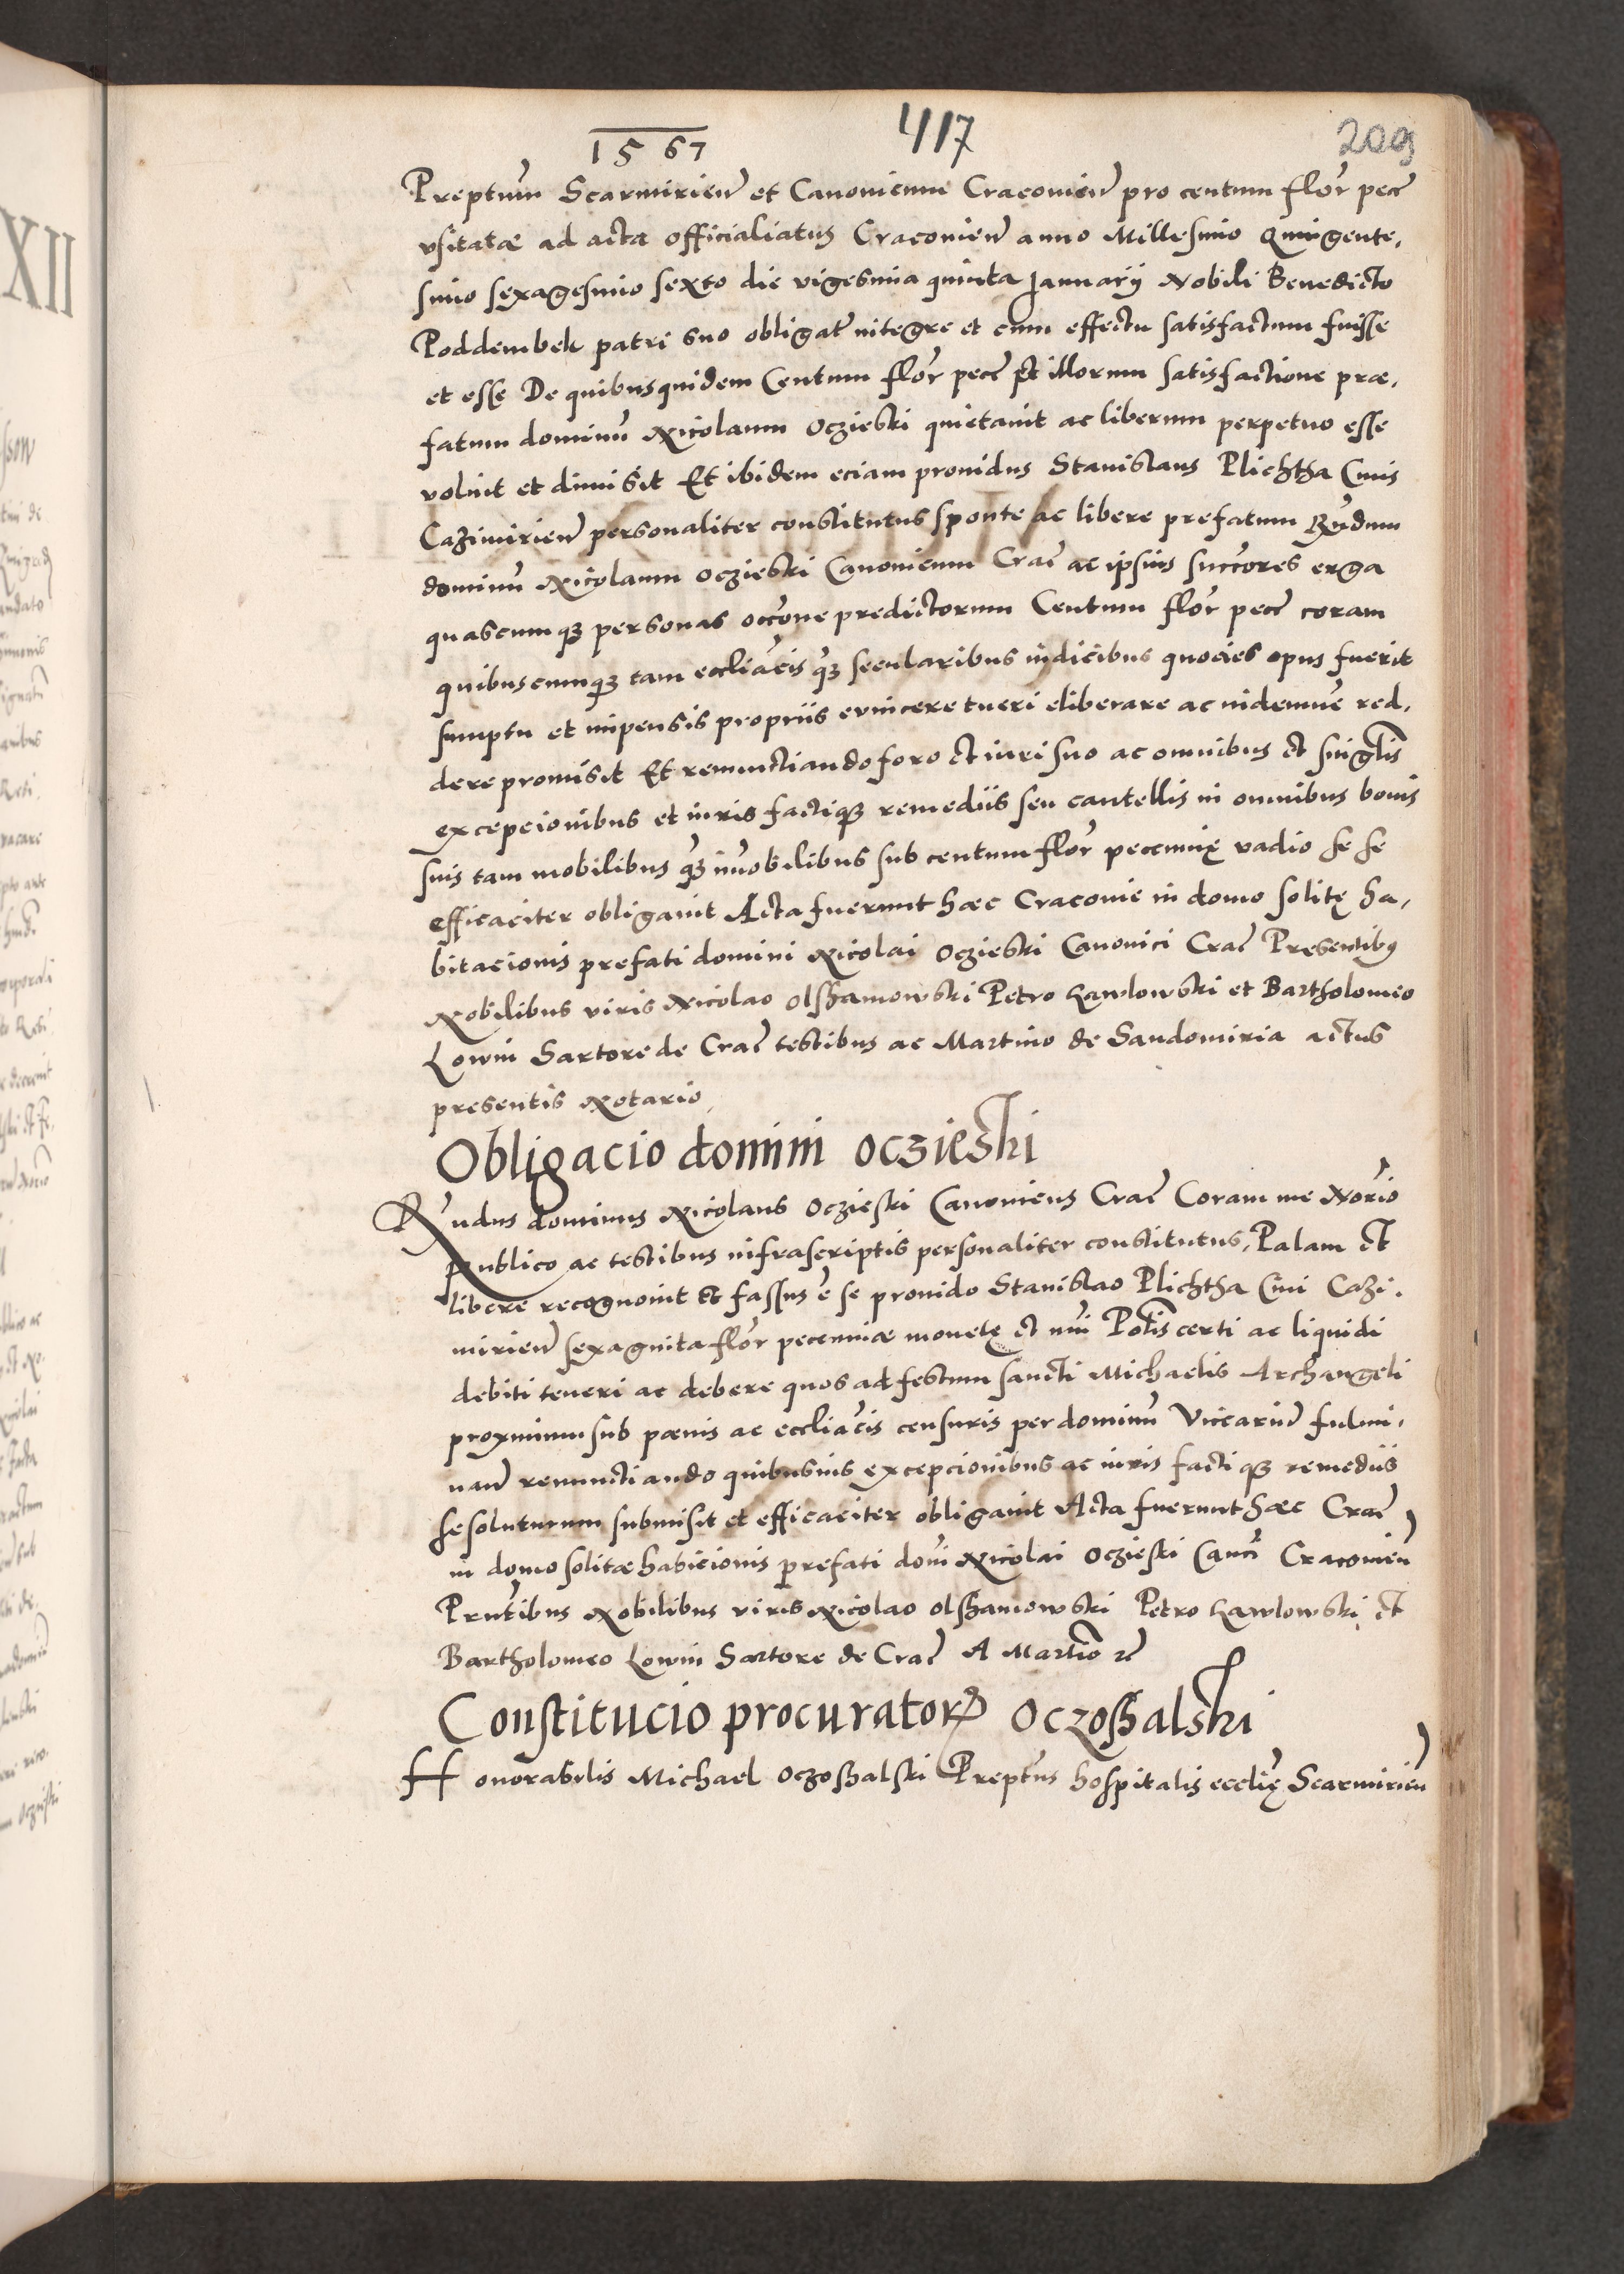 1567
417
209
Preptum Scarmirien et Canonicum Cracovien pro centum flor pecc
vsitatæ ad acta officialiatus Cracovien anno Millesimo Quingente,
simo sexagesimo sexto die vigesima quinta Januarij Nobili Benedicto
Poddembek patri suo obligat integre et cum effectu satisfactum fuisse
et esse De quibusquidem Centum flor pecc et illorum satisfactione præ,
fatum dominu Nicolaum Oczieski quietavit ac liberum perpetuo esse
voluit et dimisit Et ibidem eciam providus Stanislaus Plichtha Civis
Cazimirien personaliter constitutus sponte ac libere prefatum Rndum
dominu Nicolaum Oczieski Canonicum Crac ac ipsius succores erga
quascumq3 personas occone predictorum Centum flor pecc coram
quibuscumq3 tam eccliacis q3 secularibus iudicibus quocies opus fuerit
sumptu et impensis propriis evincere tueri eliberare ac indemne red,
dere promisit Et renunctiando foro et iuri suo ac omnibus et singlis
excepcionibus et iuris factiq3 remediis seu cautellis in omnibus bonis
suis tam mobilibus q3 imobilibus sub centum flor pecunię vadio se se
efficaciter obligavit Acta fuerunt hæc Cracovie in domo solitę ha,
bitacionis prefati domini Nicolai Oczieski Canonici Crac Presentibus
Nobilibus viris Nicolao Olschamowski Petro Lawlowski et Bartholomeo
Lowin Sartore de Crac testibus ac Martino de Sandomiria actus
presentis Notario
Obligacio domini Oczieski
Rndus dominus Nicolaus Oczieski Canonicus Crac Coram me Notrio
publico ac testibus infrascriptis personaliter constitutus, Palam et
libere recognovit et fassus e se provido Stanislao Plichtha Civi Cazi.
mirien sexaginta flor pecuniæ monetę et nui Polis certi ac liquidi
debiti teneri ac debere quos ad festum sancti Michaelis Archangeli
proximum sub pœnis ac eccliacis censuris per dominu Vicariu fulmi,
nan renunctiando quibusvis excepcionibus ac iuris factiq3 remediis
se soluturum submisit et efficaciter obligavit Acta fuerunt hæc Crac
in domo solitæ habicionis prefati domi Nicolai Oczieski Canci Cracovien
Prntibus Nobilibus viris Nicolao Olschamowski Petro Lawlowski et
Bartholomeo Lowin Sartore de Crac A Martino rc
Constitucio procurator Oczoschalski
Honorabilis Michael Oczoschalski Preptus hospitalis ecclię Scarmirien